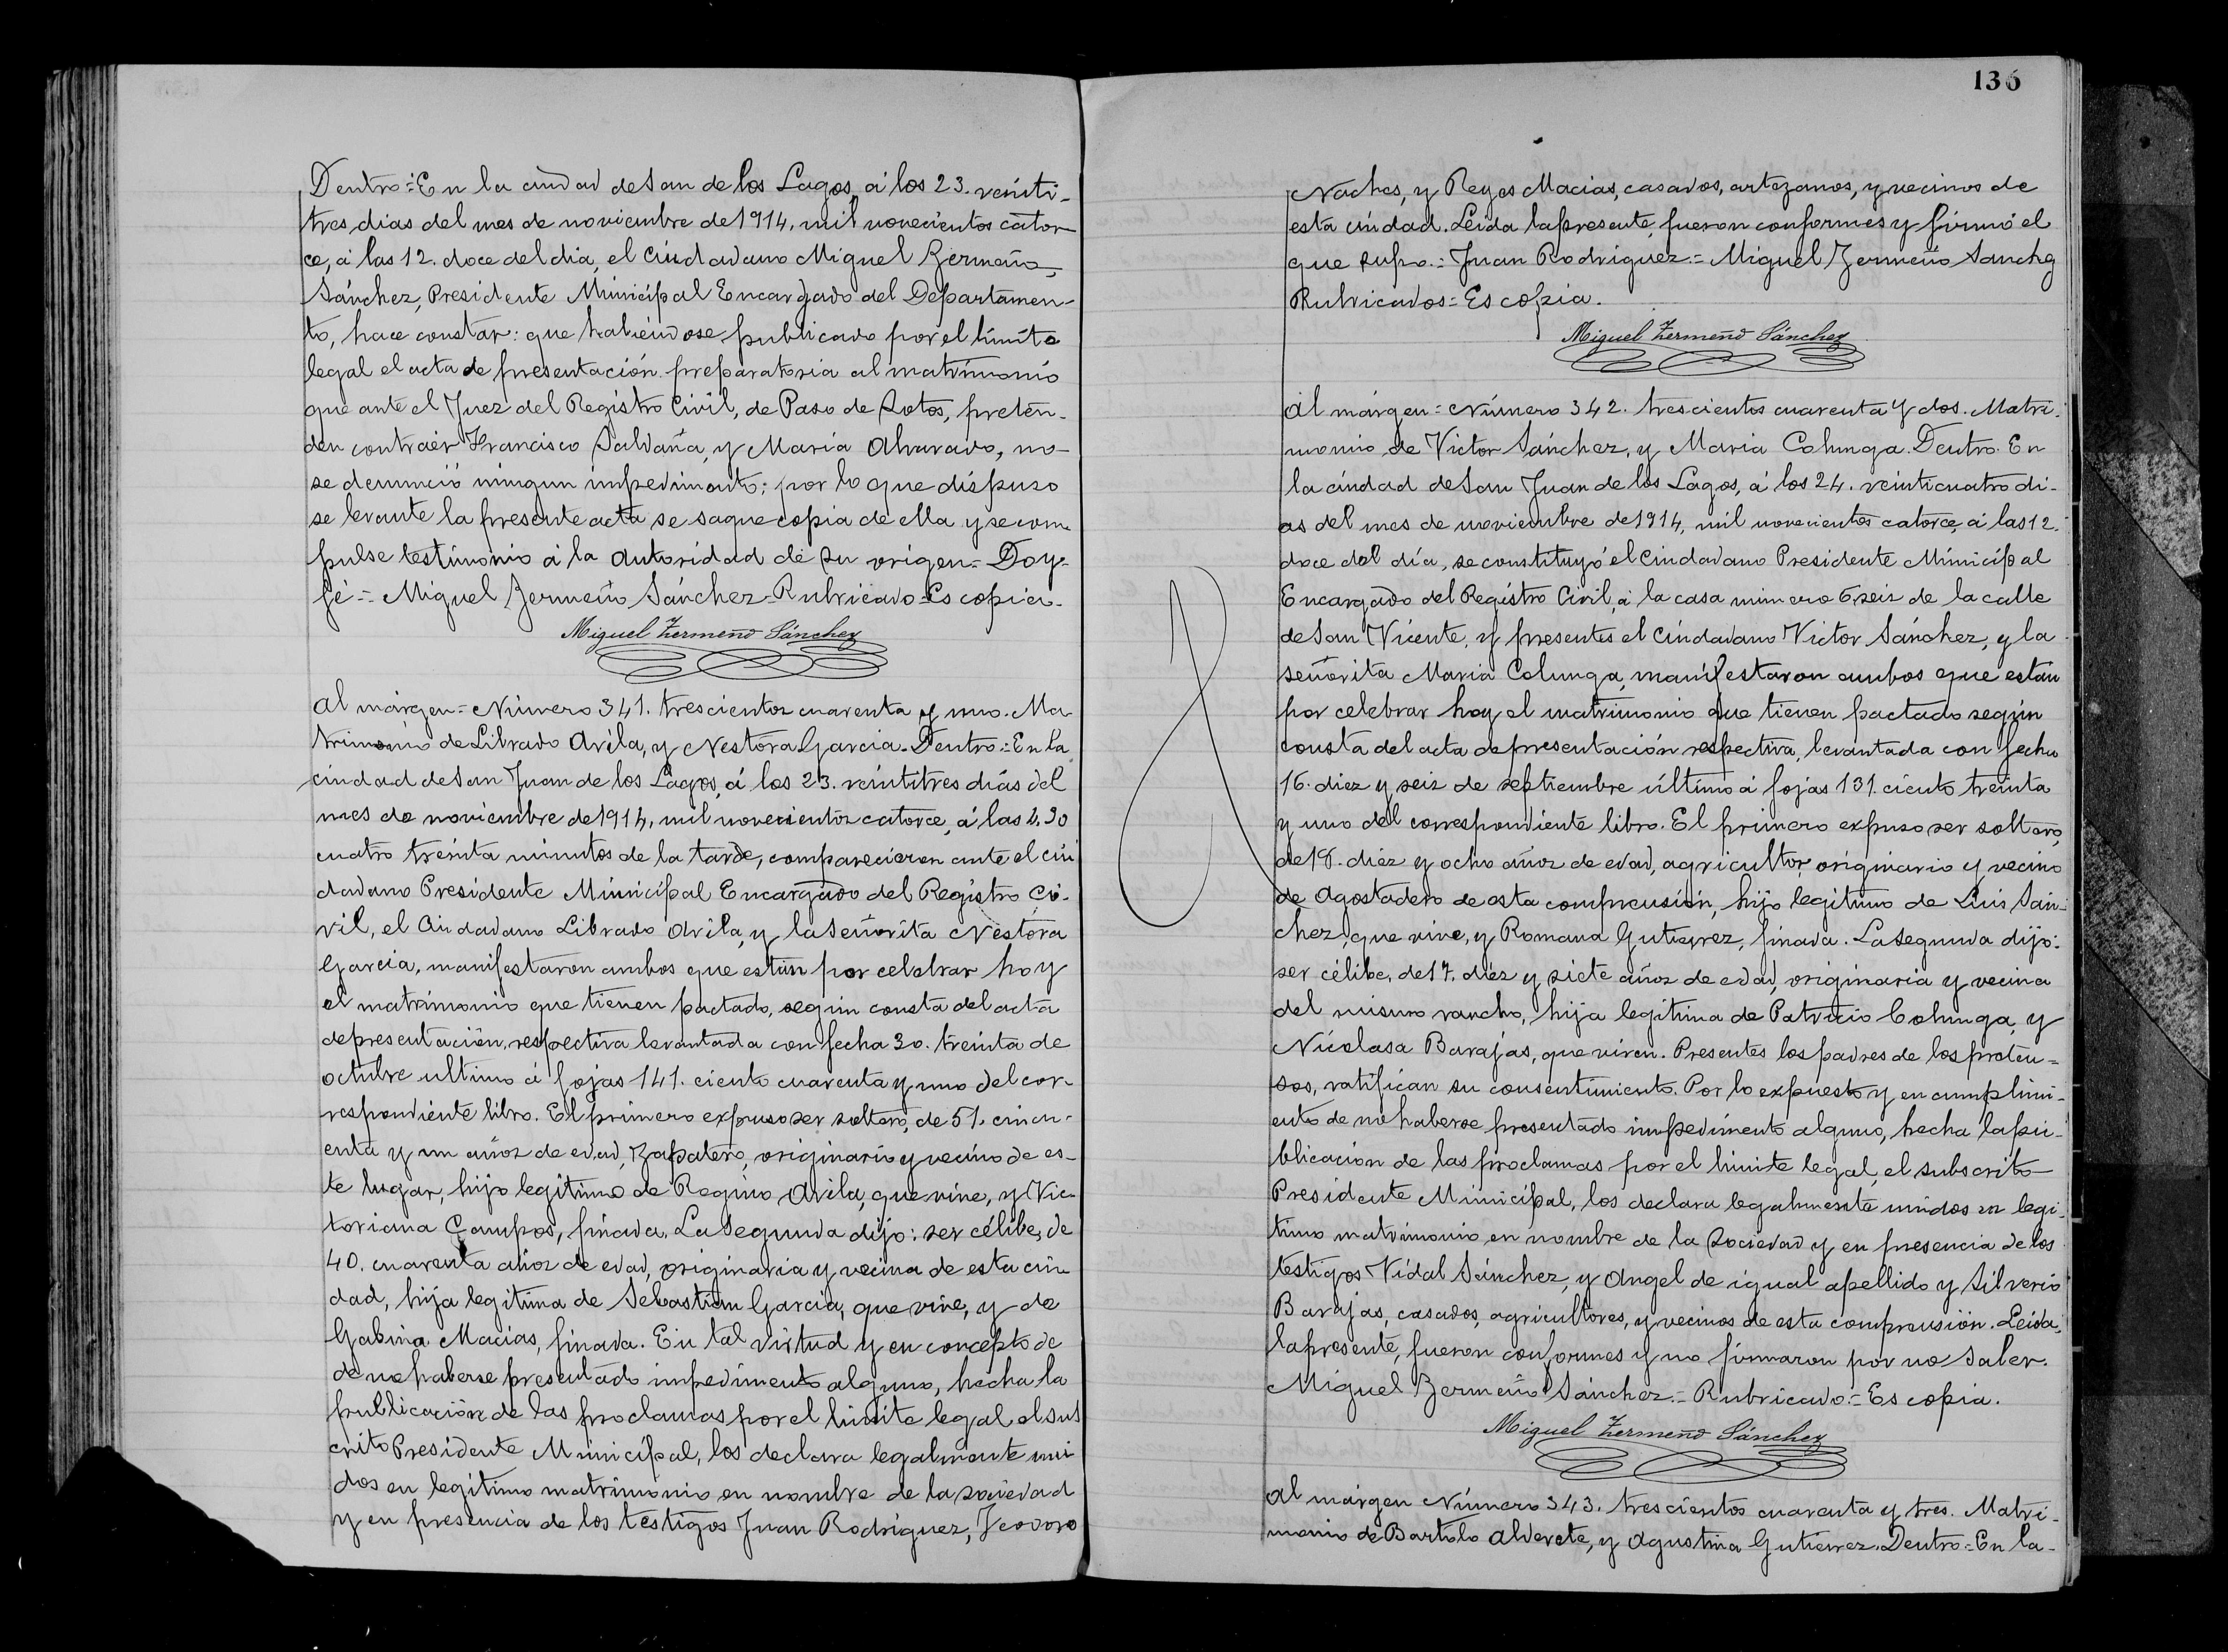 Dentro=En la ciudad de San de los Lagos, á los 23. veinti-
tres, dias del mes de noviembre de 1914, mil novecientos cator
ce, á las 12. doce del dia, el Ciudadano Miguel Zermeño
Sánchez, Presidente Municipal Encargado del Departamen-
to, hace constar: que habiéndose publicado por el límite
legal el acta de presentación preparatoria al matrimonio
que ante el Juez del Registro Civil, de Paso de Sotos, preten-
den contraer Francisco Saldaña, y María Alvarado, no-
se denunció ningun impedimento; por lo que dispuso
se levante la presente acta se saque copia de ella y se com-
pulse testimonio á la autoridad de su origen= Doy-
fé= Miguel Zermeño Sánchez=Rubricado=Es copia.
Miguel Zermeño Sánchez
Al márgen=Número 341. trescientos cuarenta y uno. Ma-
trimonio de Librado Avila, y Nestora Garcia. Dentro=En la
ciudad de San Juan de los Lagos, á los 23. veintitres días del
mes de noviembre de 1914, mil novecientos catorce, á las 4,30
cuatro treinta minutos de la tarde, comparecieron ante el ciu
dadano Presidente Municipal Encargado del Registro Ci-
vil, el Ciudadano Librado Avila, y la Señorita Nestora
Garcia, manifestaron ambos que están por celebrar hoy
el matrimonio que tienen pactado, según consta del acta
de presentación, respectiva levantada con fecha 30. treinta de
octubre ultimo á fojas 141. ciento cuarenta y uno del cor-
respondiente libro. El primero expuso ser soltero, de 51. cincu-
enta y un años de edad, Zapatero, originario y vecino de es-
te lugar, hijo legítimo de Regino Avila, que vive, y Vic-
toriana Campos, finada. La Segunda dijo: ser célibe, de
40. cuarenta años de edad, originaria y vecina de esta ciu
dad, hija legítima de Sebastian Garcia, que vive, y de
Gabina Macías, finada. En tal virtud y en concepto de
de no haberse presentado impedimento alguno, hecha la
publicación de las proclamas por el límite legal el sus
crito Presidente Municipal, los declara legalmente uni
dos en legítimo matrimonio en nombre de la sociedad
y en presencia de los testigos Juan Rodríguez, Teodoro
136
Naches, y Reyes Macias, casados, artezanos, y vecinos de
esta ciudad. Leída la presente, fueron conformes y firmó el
que supo.= Juan Rodriguez.= Miguel Zermeño Sanchez
Rubricados=Es copia.
Miguel Zermeño Sánchez
Al márgen=Número 342. trescientos cuarenta y dos. Matri-
monio de Victor Sánchez, y Maria Colunga. Dentro. En
la ciudad de San Juan de los Lagos, á los 24. veinticuatro di-
as del mes de noviembre de 1914, mil novecientos catorce, á las 12.
doce del día, se constituyó el Ciudadano Presidente Municipal
Encargado del Registro Civil, á la casa número 6, seis de la calle
de San Vicente, y presentes el Ciudadano Victor Sánchez, y la
señorita Maria Colunga, manifestaron ambos que están
por celebrar hoy el matrimonio que tienen pactado según
consta del acta de presentación respectiva, levantada con fecha
16. diez y seis de septiembre último á fojas 131. ciento treinta
y uno del correspondiente libro. El primero expuso ser soltero,
de 18. diez y ocho años de edad, agricultor, originario y vecino
de Agostadero de esta comprensión, hijo legítimo de Luis Sán-
chez, que vive, y Romana Gutierrez, finada. La segunda dijo:
ser célibe, de 17. diez y siete años de edad, originaria y vecina
del mismo rancho, hija legítima de Patricio Colunga, y
Nicolasa Barajas, que viven. Presentes los padres de los preten-
sos, ratifican su consentimiento. Por lo expuesto y en cumplimi-
ento de no haberse presentado impedimento alguno, hecha la pu-
blicación de las proclamas por el límite legal, el subscrito
Presidente Municipal, los declara legalmente unidos en legi-
timo matrimonio en nombre de la Sociedad y en presencia de los
testigos Vidal Sánchez, y Angel de igual apellido y Silverio
Barajas, casados, agricultores, y vecinos de esta comprensión. Leída,
la presente, fueron conformes y no firmaron por no saber.
Miguel Zermeño Sánchez.= Rubricado.= Es copia.
Miguel Zermeño Sánchez
Al márgen Número 343. trescientos cuarenta y tres. Matri-
monio de Bartolo Alderete, y Agustina Gutierrez. Dentro=En la-